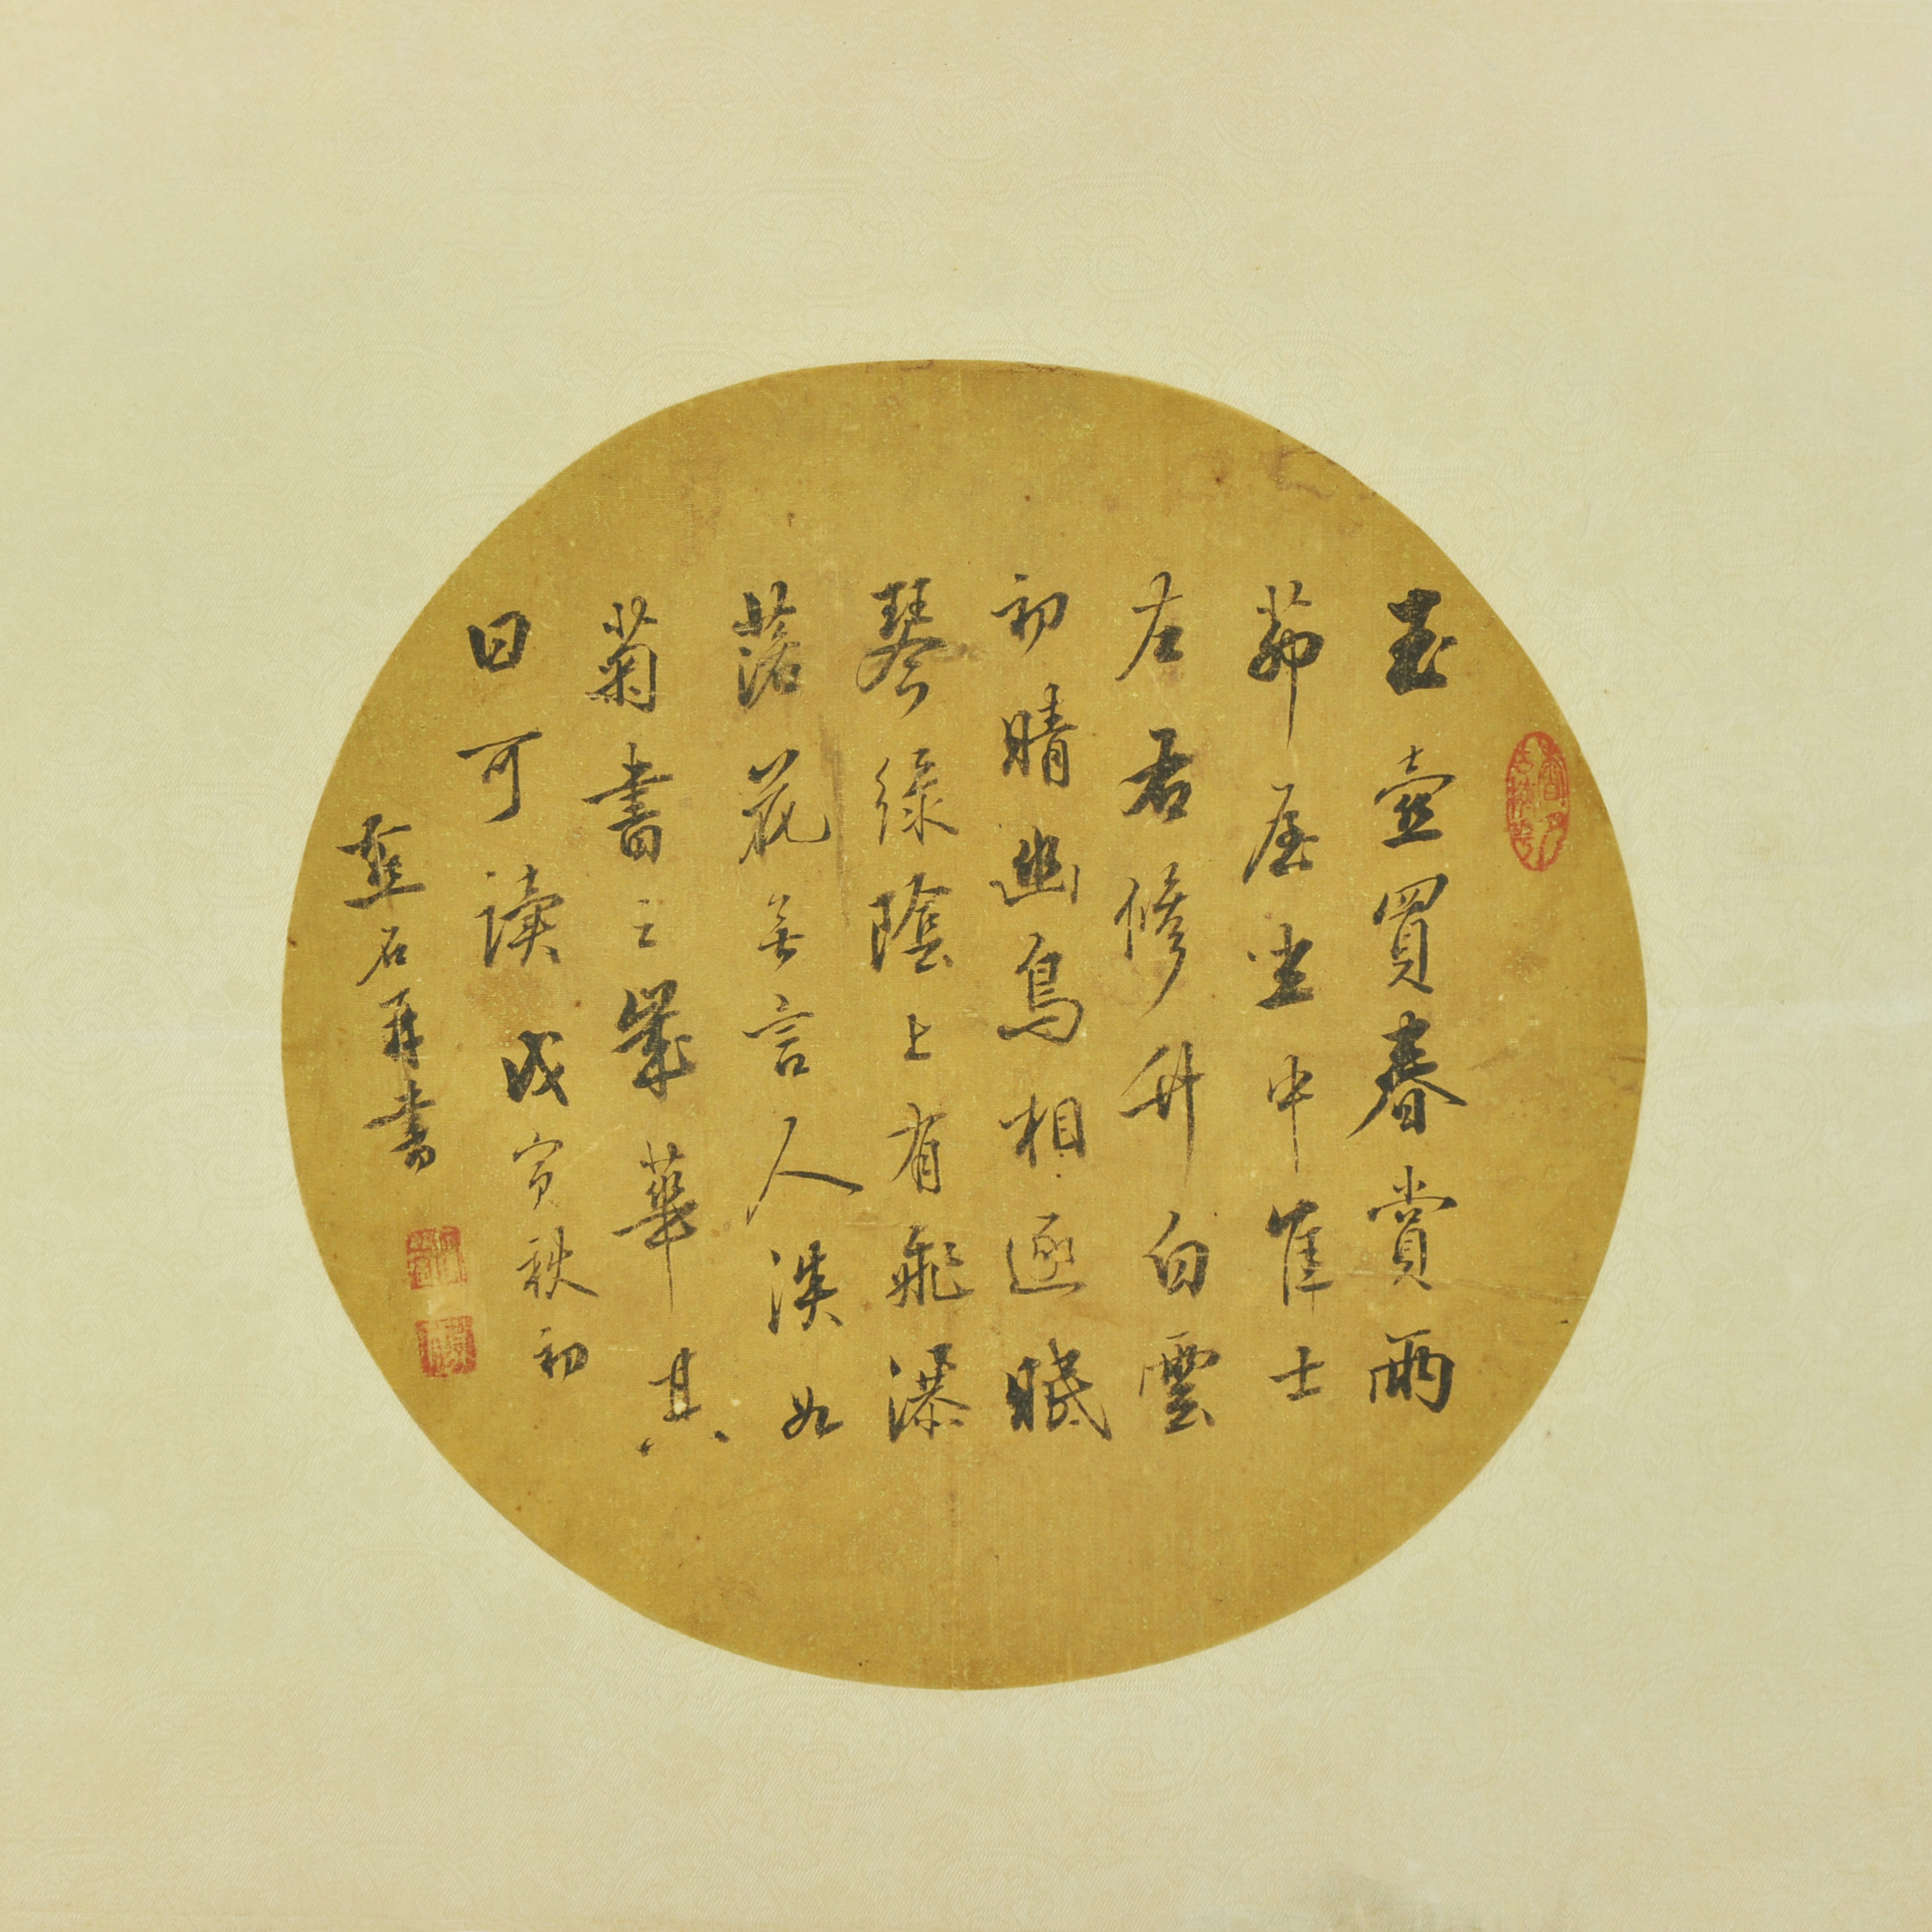 玉壺買春賞雨
茆屋坐中佳士
左右修竹白雲
初晴幽鳥相逐眠
琴綠陰上有飛瀑
落花無言人淡如
菊書之歲華其
曰可讀戊寅秋初
石再書